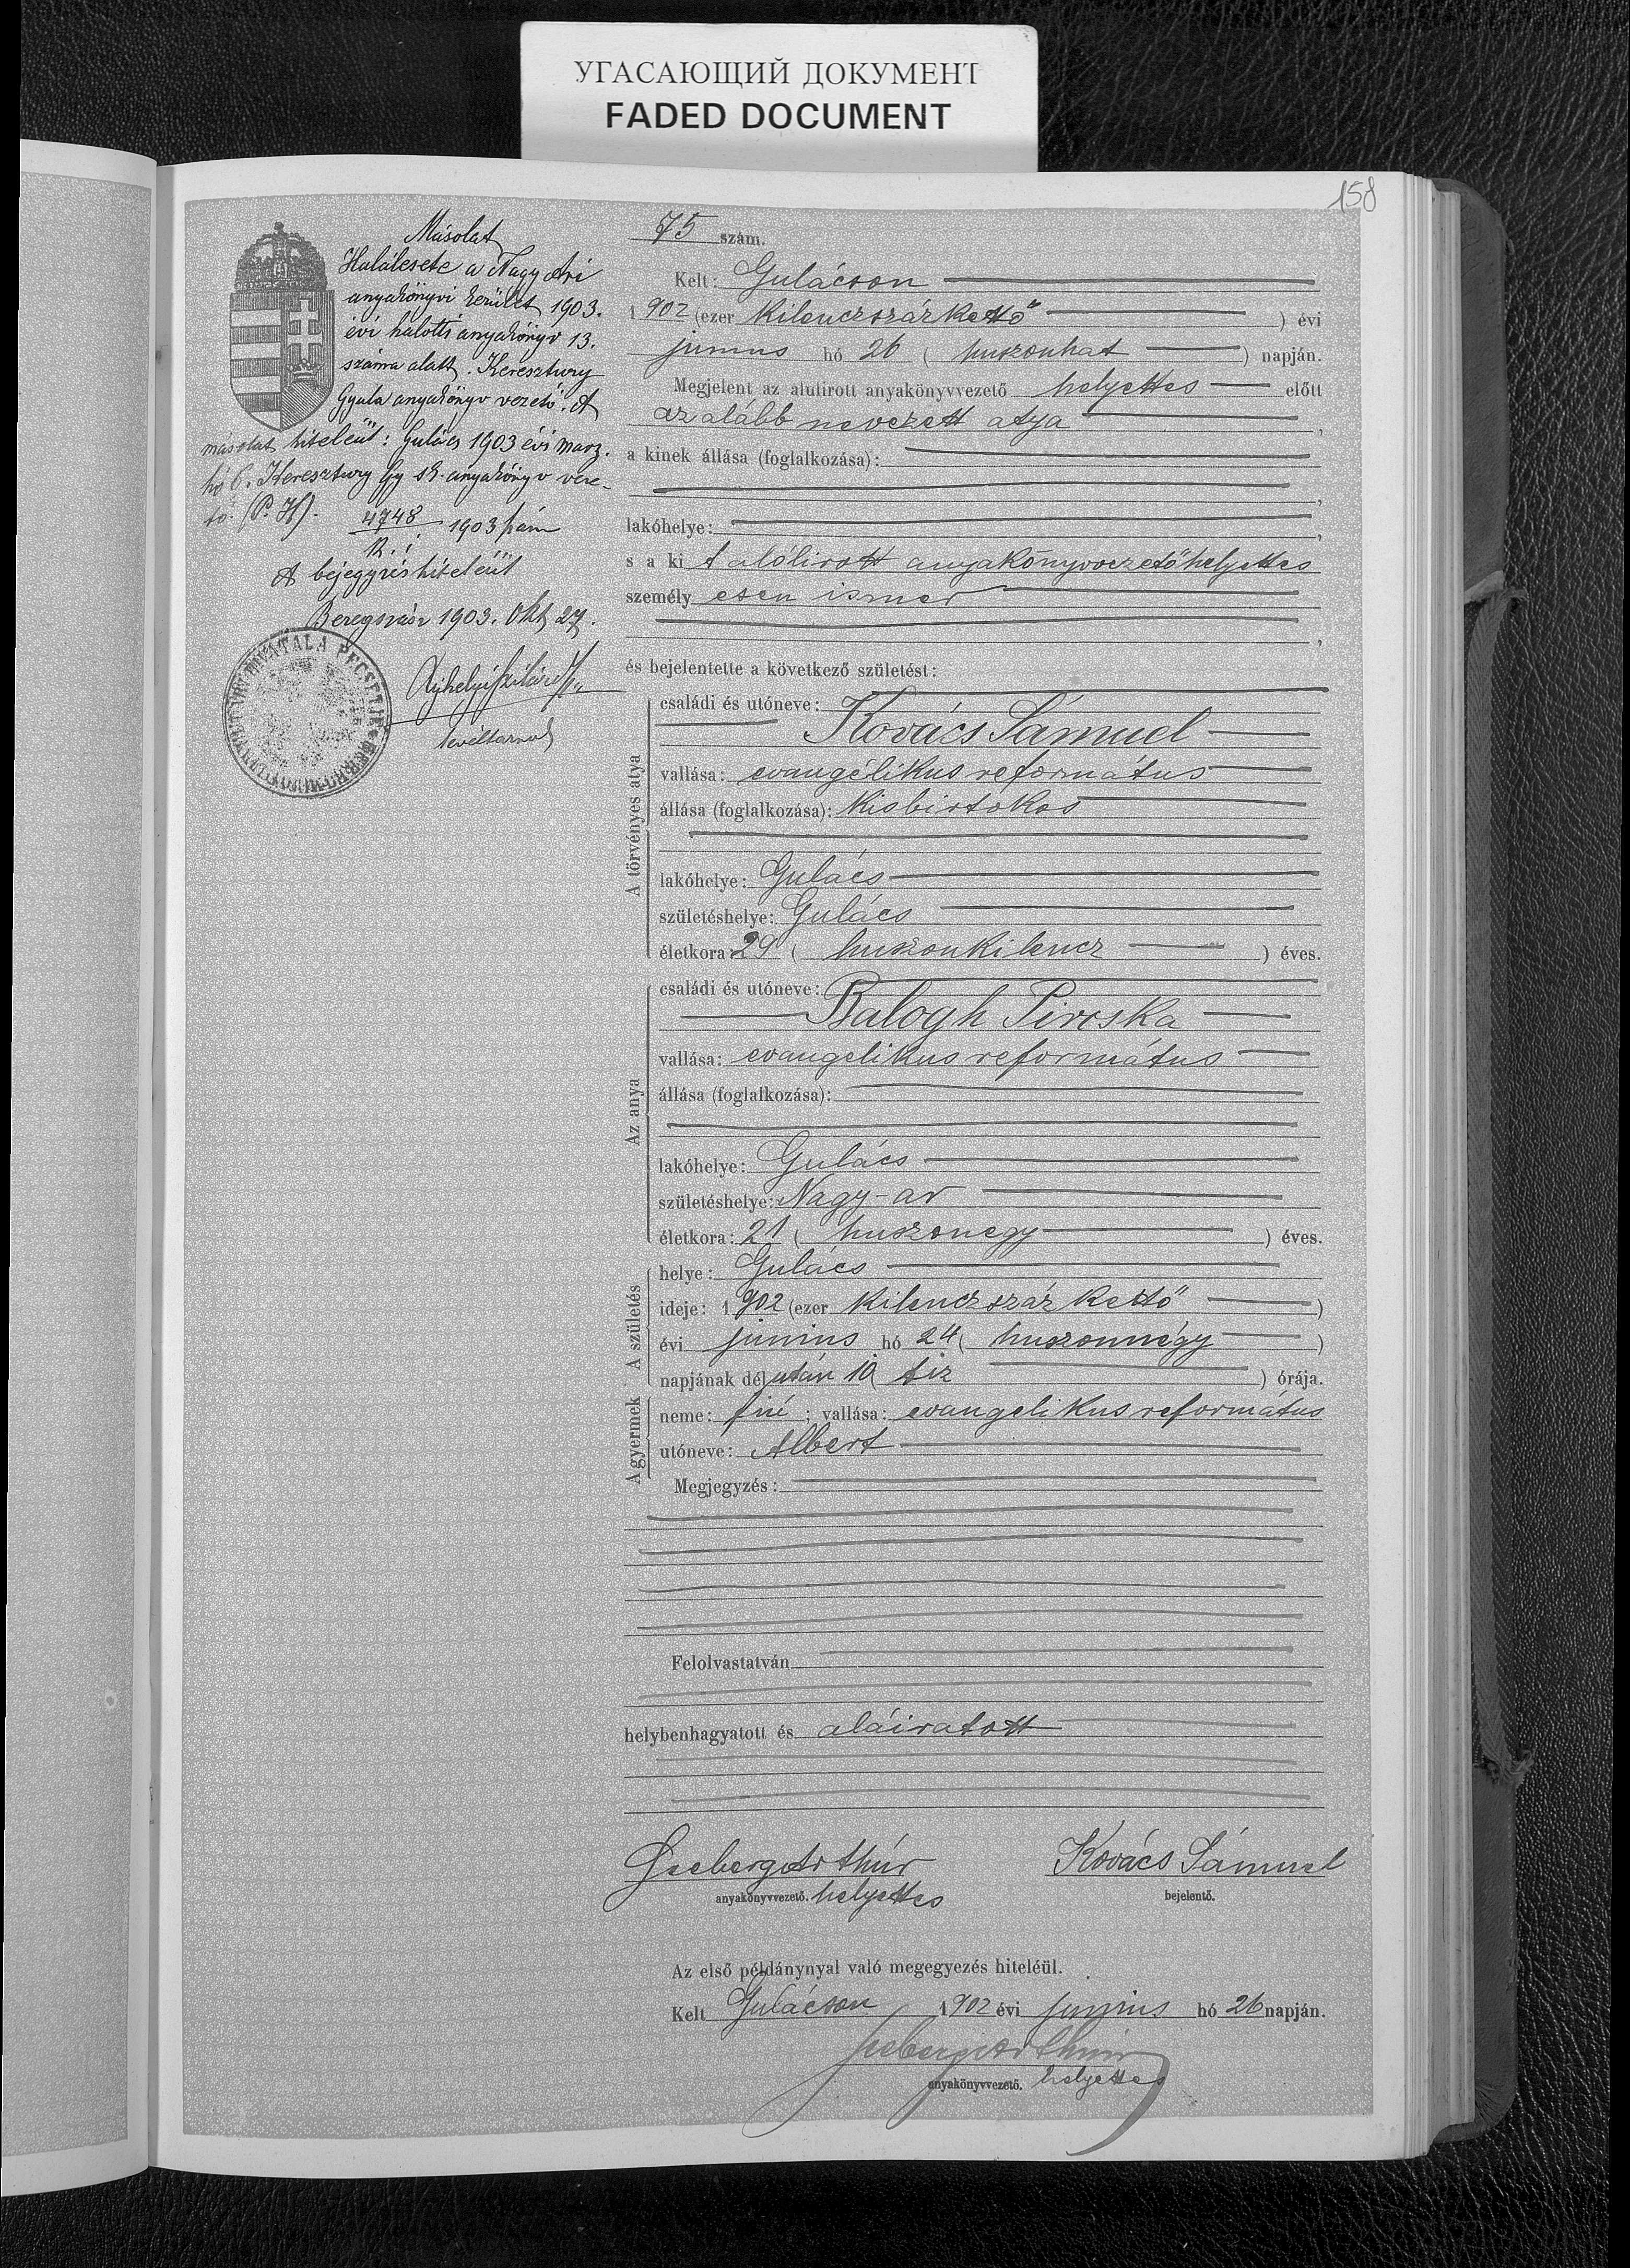 УГАСАЮЩИЙ ДОКУМЕНТ
FADED DOCUMENT
158
Másolat
Halálesete a Nagy Ari
anyakönyvi kerület 1903.
évi halotti anyakönyv 13.
száma alatt. Keresztury
Gyula anyakönyv vezető. A
másolat hiteléül: Gulács 1903 évi marz.
hó 6. Keresztury Gy sk. anyakönyv veze-
tő. (P. H).
4748 1903 szám
A bejegyzés hiteléül
Beregszász 1903. Okt 27.
levéltárnok
75 szám.
Kelt: Gulácson
1902 (ezer kilenczszázkettő ) évi
junius hó 26 ( huszonhat ) napján.
Megjelent az alulirott anyakönyvvezető helyettes előtt
az alább nevezett atya ,
a kinek állása (foglalkozása):
,
lakóhelye: ,
s a ki t alólirott anyakönyvvezetőhelyettes
személy esen ismer
,
és bejelentette a következő születést:
A törvényes atya
családi és utóneve:
Kovács Sámuel
vallása: evangélikus református
állása (foglalkozása): kisbirtokos
lakóhelye: Gulács
születéshelye: Gulács
életkora: 29 ( huszonkilencz ) éves.
Az anya
családi és utóneve:
Balogh Piroska
vallása: evangelikus református
állása (foglalkozása):
lakóhelye: Gulács
születéshelye: Nagy-ar
életkora: 21 ( huszonegy ) éves.
A születés
helye: Gulács
ideje: 1902 (ezer kilenczszáz kettő )
évi junius hó 24 ( huszonnégy )
napjának délután 10 ( tiz ) órája.
A gyermek
neme: fiú ; vallása: evangelikus református
utóneve: Albert
Megjegyzés:
Felolvastatván
helybenhagyatott és aláiratott
Arthúr Kovács Sámuel
anyakönyvvezető. helyettes bejelentő.
Az első példánynyal való megegyezés hiteléül.
Kelt Gulácson 1902 évi junius hó 26 napján.
anyakönyvvezető. helyettes